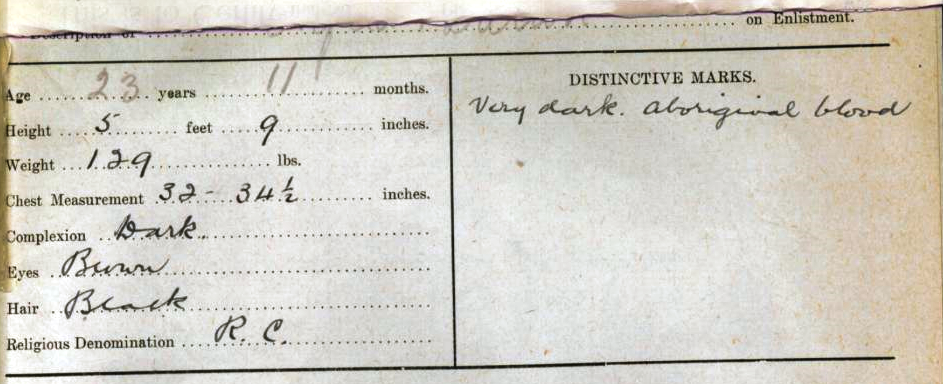 Description of on Enlistment.
Age 23 years 11 months.
Height 5 feet 9 inches.
Weight 129 lbs.
Chest Measurement 32 - 34½ inches.
Complexion Dark
Eyes Brown
Hair Black
Religious Denomination R. C.
DISTINCTIVE MARKS.
Very dark. Aboriginal blood